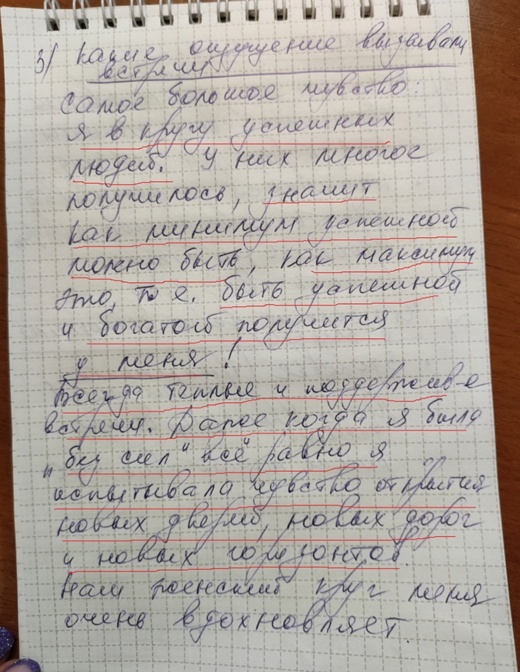 3/ Какие ощущение вызывали
встречи
Самое большое чувство:
я в кругу успешных
людей. У них многое
получилось, значит
как минимум успешной
можно быть, как максимум
это, т.е. быть успешной
и богатой получится
у меня!
Всегда теплые и поддержив-е
встречи. Даже когда я была
"без сил" всё равно я
испытывала чувство открытия
новых дверей, новых дорог
и новых горизонтов.
Наш женский круг меня
очень вдохновляет.